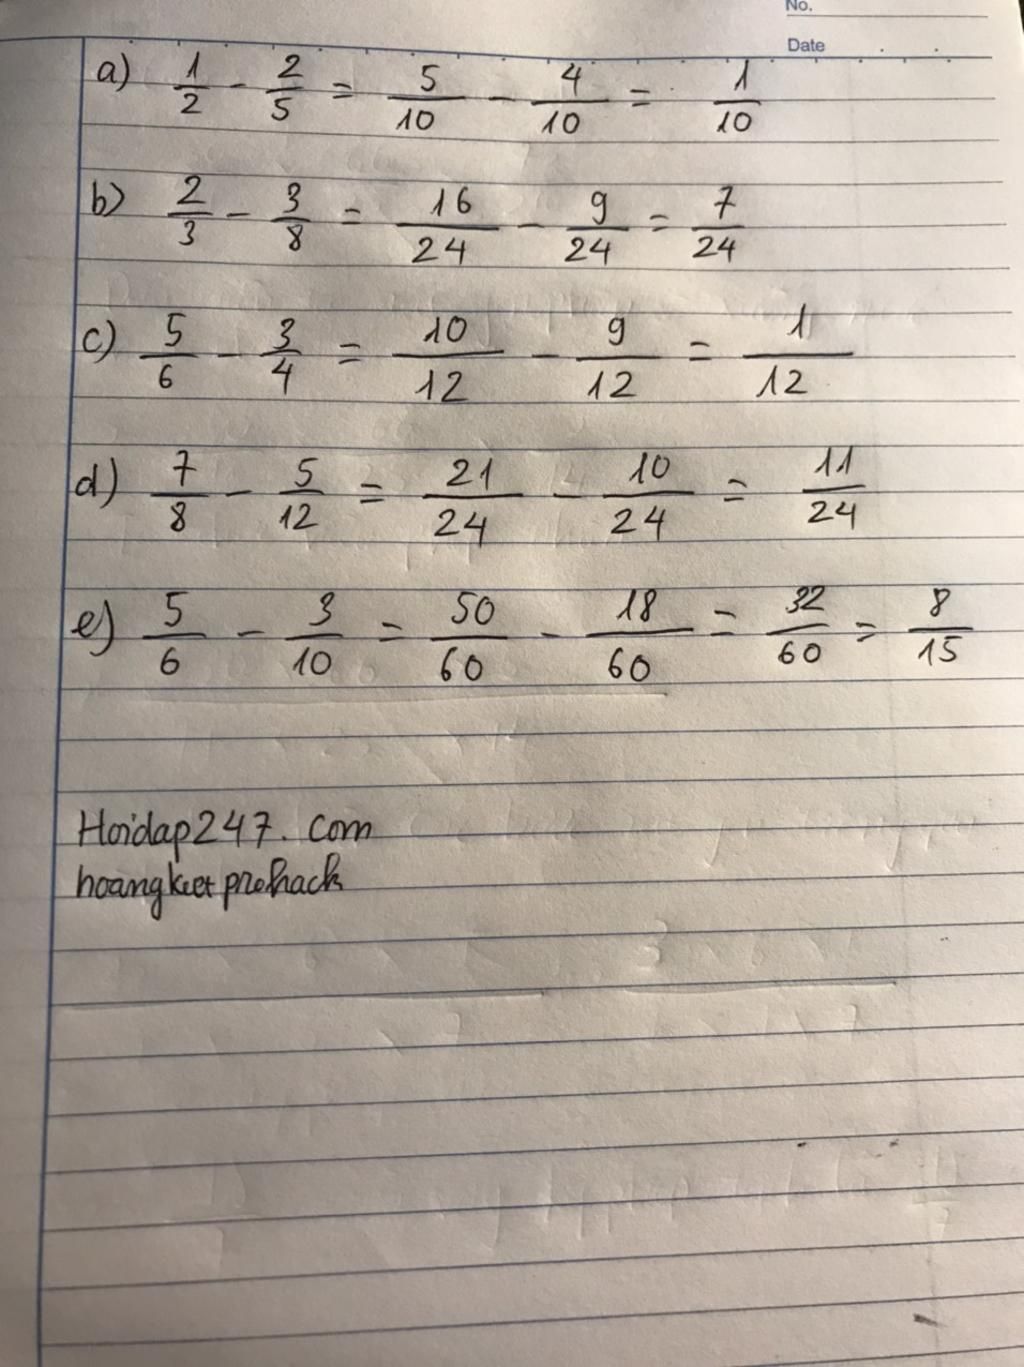 No.
Date
a) 1/2 - 2/5 = 5/10 - 4/10 = 1/10
b) 2/3 - 3/8 = 16/24 - 9/24 = 7/24
c) 5/6 - 3/4 = 10/12 - 9/12 = 1/12
d) 7/8 - 5/12 = 21/24 - 10/24 = 11/24
e) 5/6 - 3/10 = 50/60 - 18/60 = 32/60 = 8/15
Hoidap247. com
hoangkiet prohack